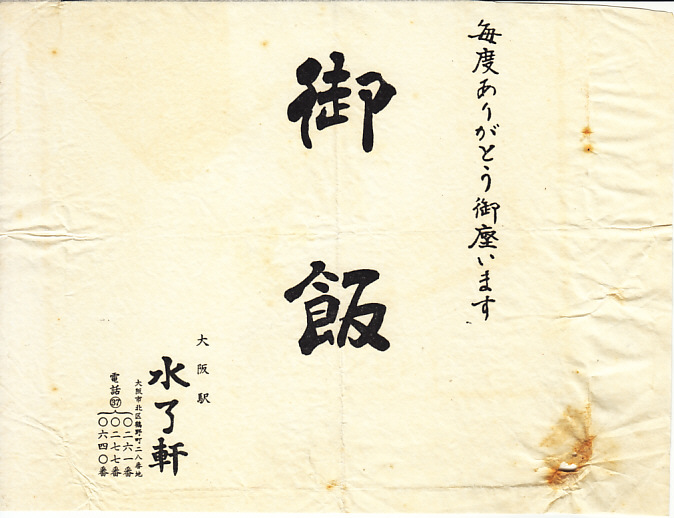 毎度ありがとう御座います
御飯
大阪駅
水了軒
大阪市北区鶴野町二八番地
電話㊲
〇二六一番
〇二七七番
〇六四〇番